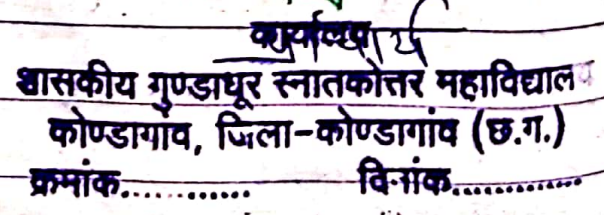 कार्यालय
शासकीय गुण्डाधूर स्नातकोत्तर महाविद्यालय
कोण्डागांव, जिला-कोण्डागांव (छ.ग.)
क्रमांक............ दिनांक.............